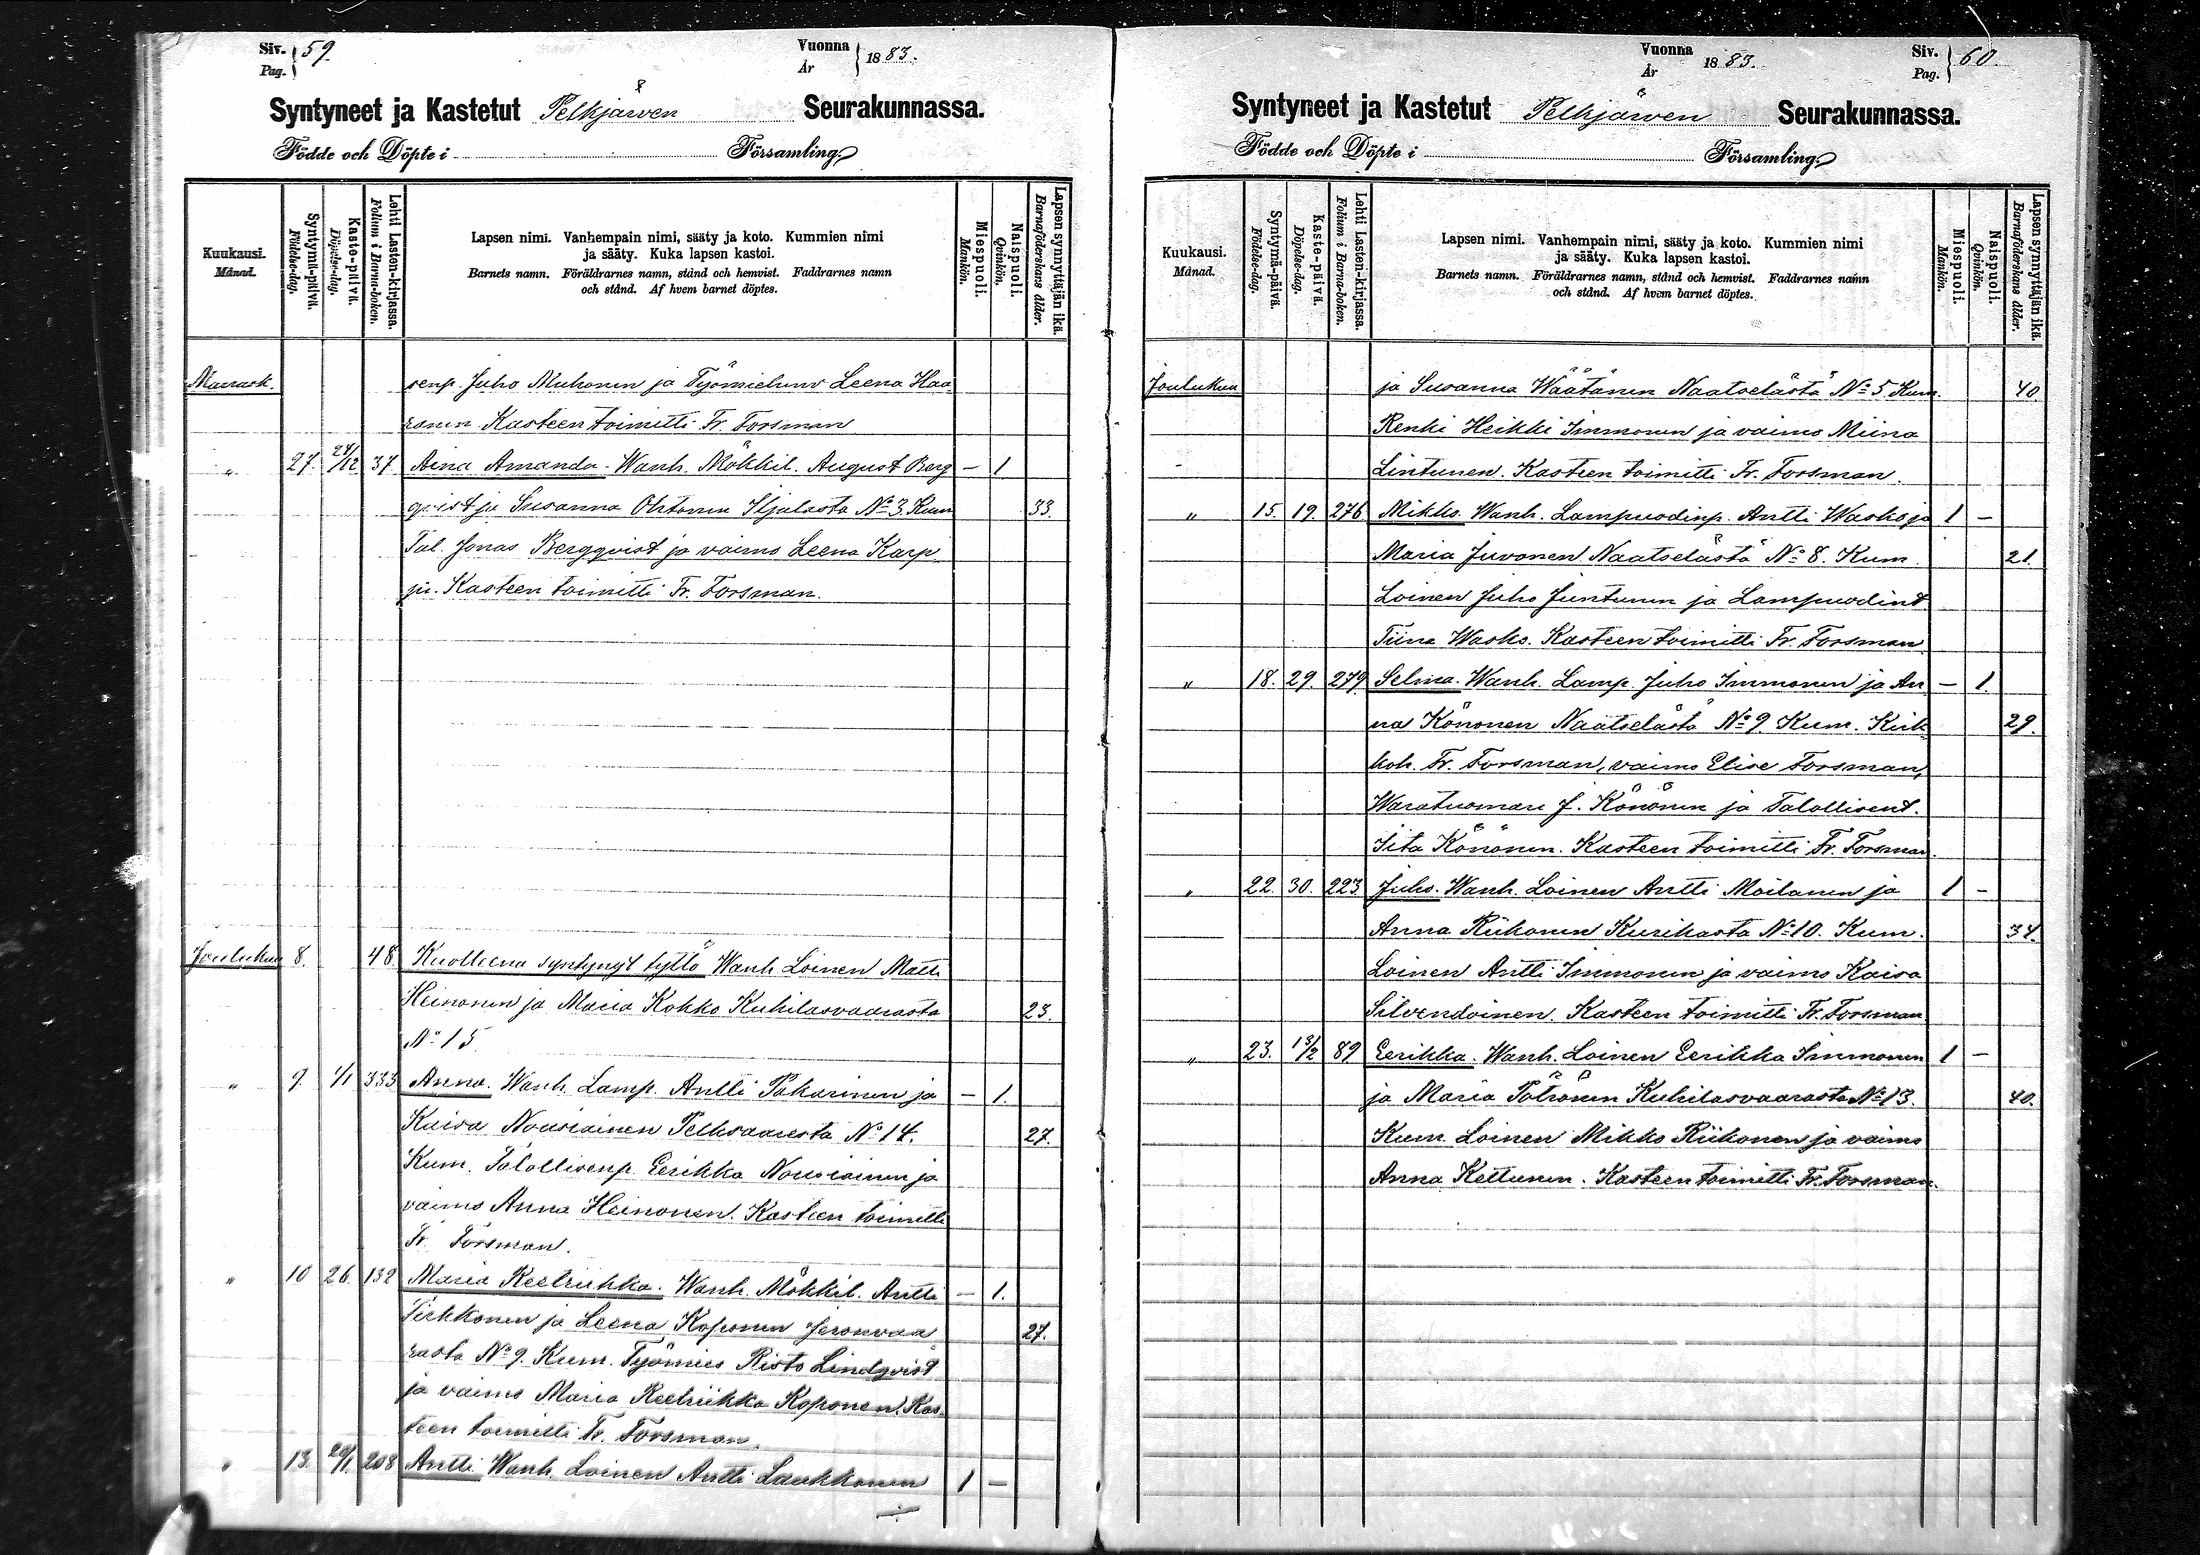 Siv. 59.
Pag.
Vuonna 1883.
År
Syntyneet ja Kastetut Pelkjärven Seurakunnassa.
Födde och Döpte i Församling.
Kuukausi.
Månad.
Syntymä-päivä.
Födelse-dag.
Kaste-päivä.
Döpelse-dag.
Lehti Lasten-kirjassa.
Folium i Barna-boken.
Lapsen nimi. Vanhempain nimi, sääty ja koto. Kummien nimi
ja sääty. Kuka lapsen kastoi.
Barnets namn. Föräldrarnes namn, stånd och hemvist. Faddrarnes namn
och stånd. Af hvem barnet döptes.
Miespuoli.
Mankön.
Naispuoli.
Qvinkön.
Lapsen synnyttäjän ikä.
Barnaföderskans ålder.
Marrask. senp. Juho Muhonen ja Työmiehenv Leena Haa
ranen Kasteen toimitti Fr. Forsman
" 27. 24/12 37 Aina Amanda. Wanh. Mökkil. August Berg — 1
qvist ja Susanna Ohtonen Iljalasta No 3. Kum 33.
Tal. Jonas Bergqvist ja vaimo Leena Karp
pi. Kasteen toimitti Fr. Forsman.
Joulukuu 8. 48. Kuolleena syntynyt tyttö Wanh Loinen Matti
Heinonen ja Maria Kokko Kuhilasvaarasta 23.
No 15
" 9. 1/1 333 Anna. Wanh. Lamp. Antti Pakarinen ja — 1.
Kaisa Nousiainen Pelksaaresta No 14. 27.
Kum. Talollisenp. Eerikka Nousiainen ja
vaimo Anna Heinonen. Kasteen toimitti
Fr. Forsman.
" 10 26. 132 Maria Reetriikka. Wanh. Mökkil. Antti — 1.
Pirkkonen ja Leena Koponen Jeronvaa 27.
rasta No 9. Kum. Työmies Risto Lindqvist
ja vaimo Maria Reetriikka Koponen. Kas
teen toimitti Fr. Forsman.
" 13. 20/1. 208 Antti Wanh. Loinen Antti Laukkanen 1 —
Vuonna 1883.
År
Siv. 60.
Pag.
Syntyneet ja Kastetut Pelkjärven Seurakunnassa.
Födde och Döpte i Församling.
Kuukausi.
Månad.
Syntymä-päivä.
Födelse-dag.
Kaste-päivä.
Döpelse-dag.
Lehti Lasten-kirjassa.
Folium i Barna-boken.
Lapsen nimi. Vanhempain nimi, sääty ja koto. Kummien nimi
ja sääty. Kuka lapsen kastoi.
Barnets namn. Föräldrarnes namn, stånd och hemvist. Faddrarnes namn
och stånd. Af hvem barnet döptes.
Miespuoli.
Mankön.
Naispuoli.
Qvinkön.
Lapsen synnyttäjän ikä.
Barnaföderskans ålder.
Joulukuu ja Susanna Wäätänen Naatselästä No 5 Kum. 40.
Renki Heikki Immonen ja vaimo Miina
Lintunen. Kasteen toimitti Fr. Forsman.
" 15. 19. 276 Mikko. Wanh. Lampuodinp. Antti Wasko ja 1 —
Maria Juvonen Naatselästä No 8. Kum. 21.
Loinen Juho Juntunen ja Lampuodint
Tiina Wasko. Kasteen toimitti Fr. Forsman
" 18. 29. 279 Selma. Wanh. Lamp. Juho Immonen ja An — 1.
na Könönen Naatselästä No 9 Kum. Kirk 29.
koh. Fr. Forsman, vaimo Elise Forsman,
Waratuomari J. Könönen ja Talollisent.
Iita Könönen. Kasteen toimitti Fr. Forsman.
" 22. 30. 223 Juho. Wanh. Loinen Antti Moilanen ja 1 —
Anna Riikonen Kurikasta No 10. Kum. 34.
Loinen Antti Immonen ja vaimo Kaisa
Silvendoinen. Kasteen toimitti Fr. Forsman
" 23. 13/2 89 Eerikka. Wanh. Loinen Eerikka Immonen 1 —
ja Maria Pötrönen Kuhilasvaarasta No 13. 40.
Kum. Loinen Mikko Riikonen ja vaimo
Anna Kettunen. Kasteen toimitti Fr. Forsman.